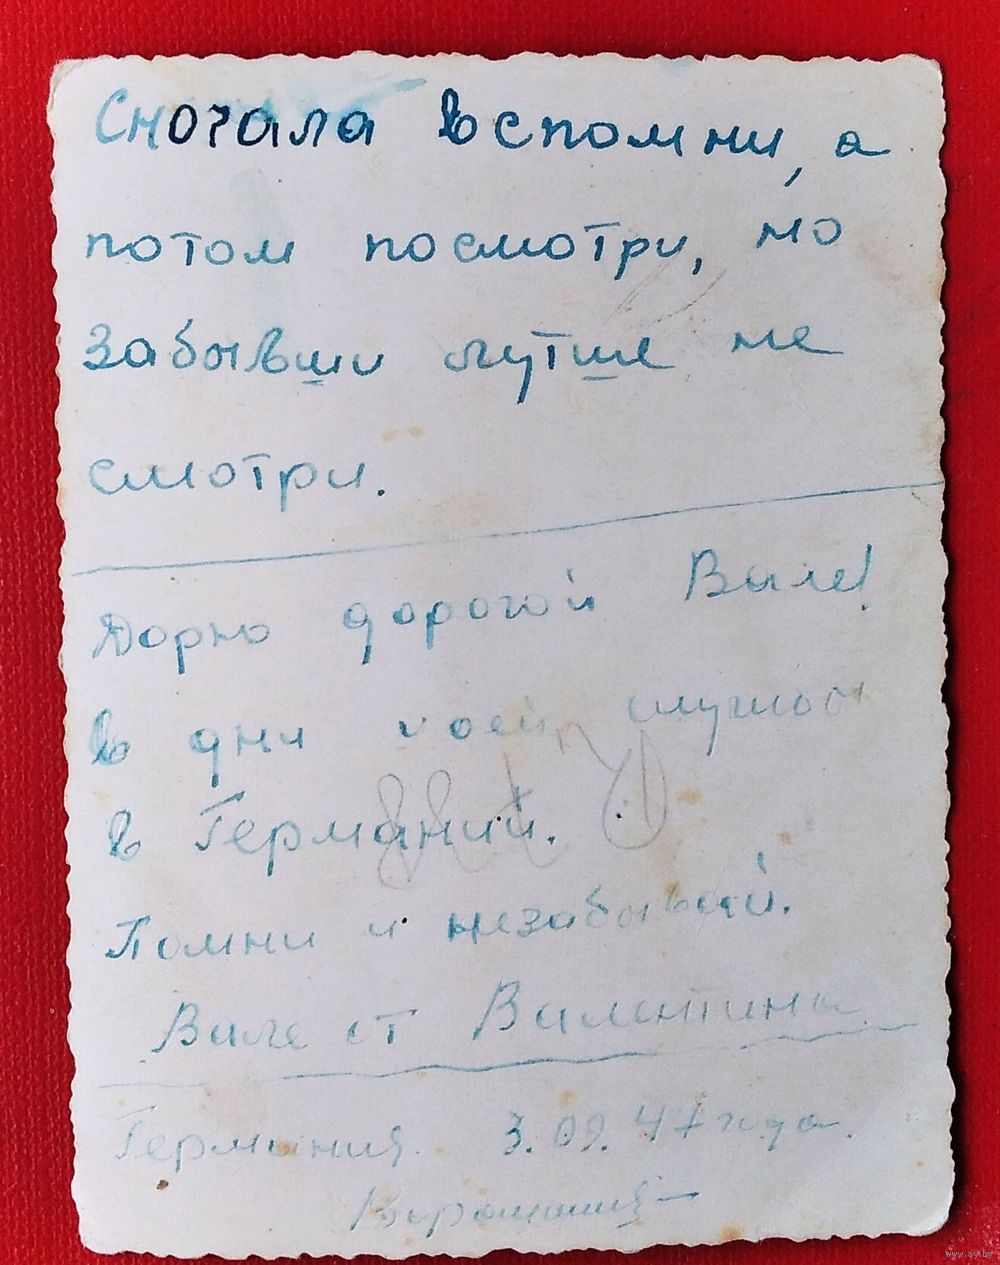 Сночала вспомни, а
потом посмотри, но
забывши лутше не
смотри.
Дорю дорогой Вале!
в дни моей службы
в Германии.
Помни и незабывай.
Вале от Валентины
Германия. 3.09.47 года.
www.ay.by